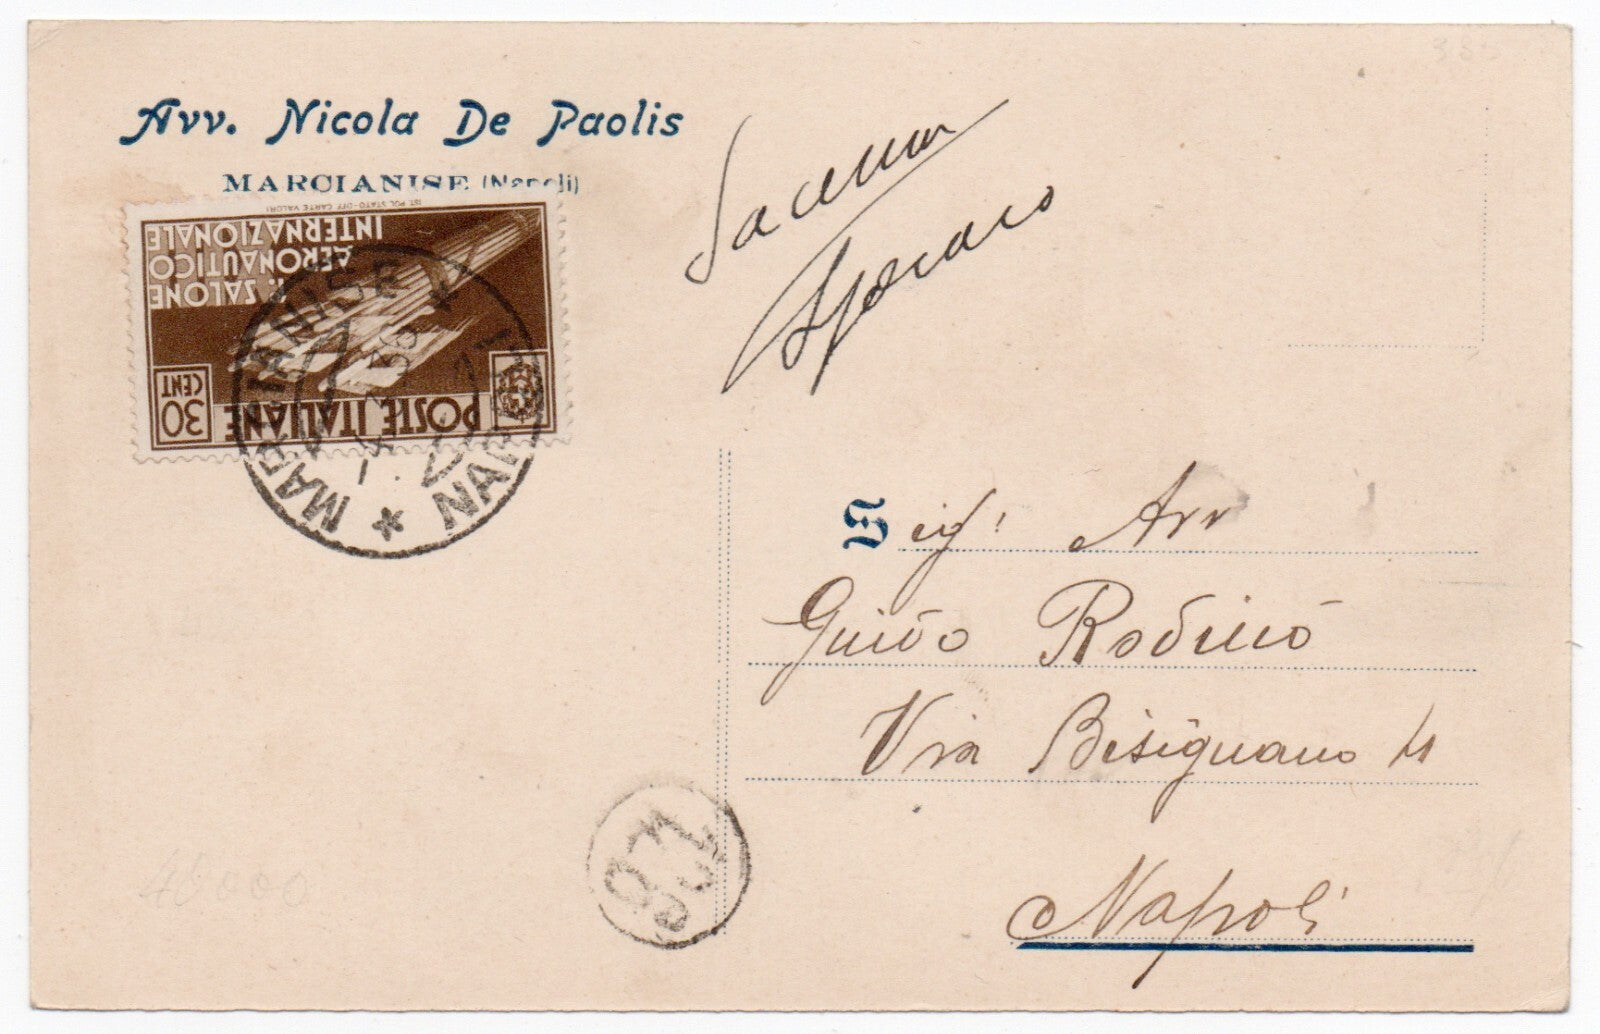 Avv. Nicola De Paolis
MARCIANISE (Napoli)
IST. POL. STATO-OFF. CARTE VALORI
I. SALONE
AERONAUTICO
INTERNAZIONALE
30
CENT
POSTE ITALIANE
MARCIANISE
NAPOLI
Sig. Avv
Guido Rodinò
Via Bisignano 11
Napoli
40000